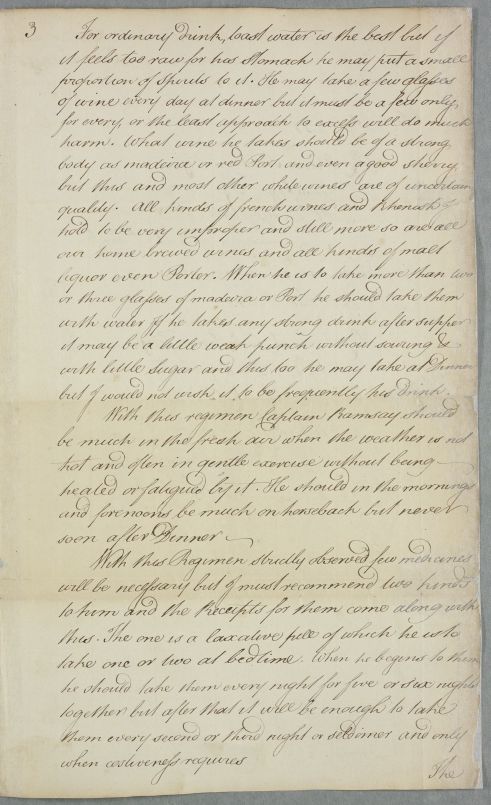 3
For ordinary Drink, toast water is the best but if
it feels too raw for his Stomach he may put a small
proportion of Spirits to it. He may take a few glasses
of wine every day at dinner but it must be a few only,
for every, or the least approach to excess will do much
harm. What wine he takes should be of a strong
body as madeira or red Port and even a good sherry
but this and most other white wines are of uncertain
quality. All kinds of french wines and Rhenish I
hold to be very improper and still more so are all
our home brewed wines and all kinds of malt
liquor even Porter. When he is to take more than two
or three glasses of madeira or Port he should take them
with water If he takes any strong drink after supper
it may be a little weak punch without souring &
with little Sugar and this too he may take at Dinner
but I would not wish it to be frequently his Drink.
With this regimen Captain Ramsay should
be much in the fresh air when the weather is not
hot and often in gentle exercise without being
heated or fatigued by it. He should in the mornings
and forenoons be much on horseback but never
soon after Dinner
With this Regimen strictly observed few medicines
will be necessary but I must recommend two kinds
to him and the Receipts for them come along with
this. The one is a laxative pill of which he is to
take one or two at bedtime. When he begins to them
he should take them every night for five or six nights
together but after that it will be enough to take
them every second or third night or seldomer and only
when costiveness requires
The